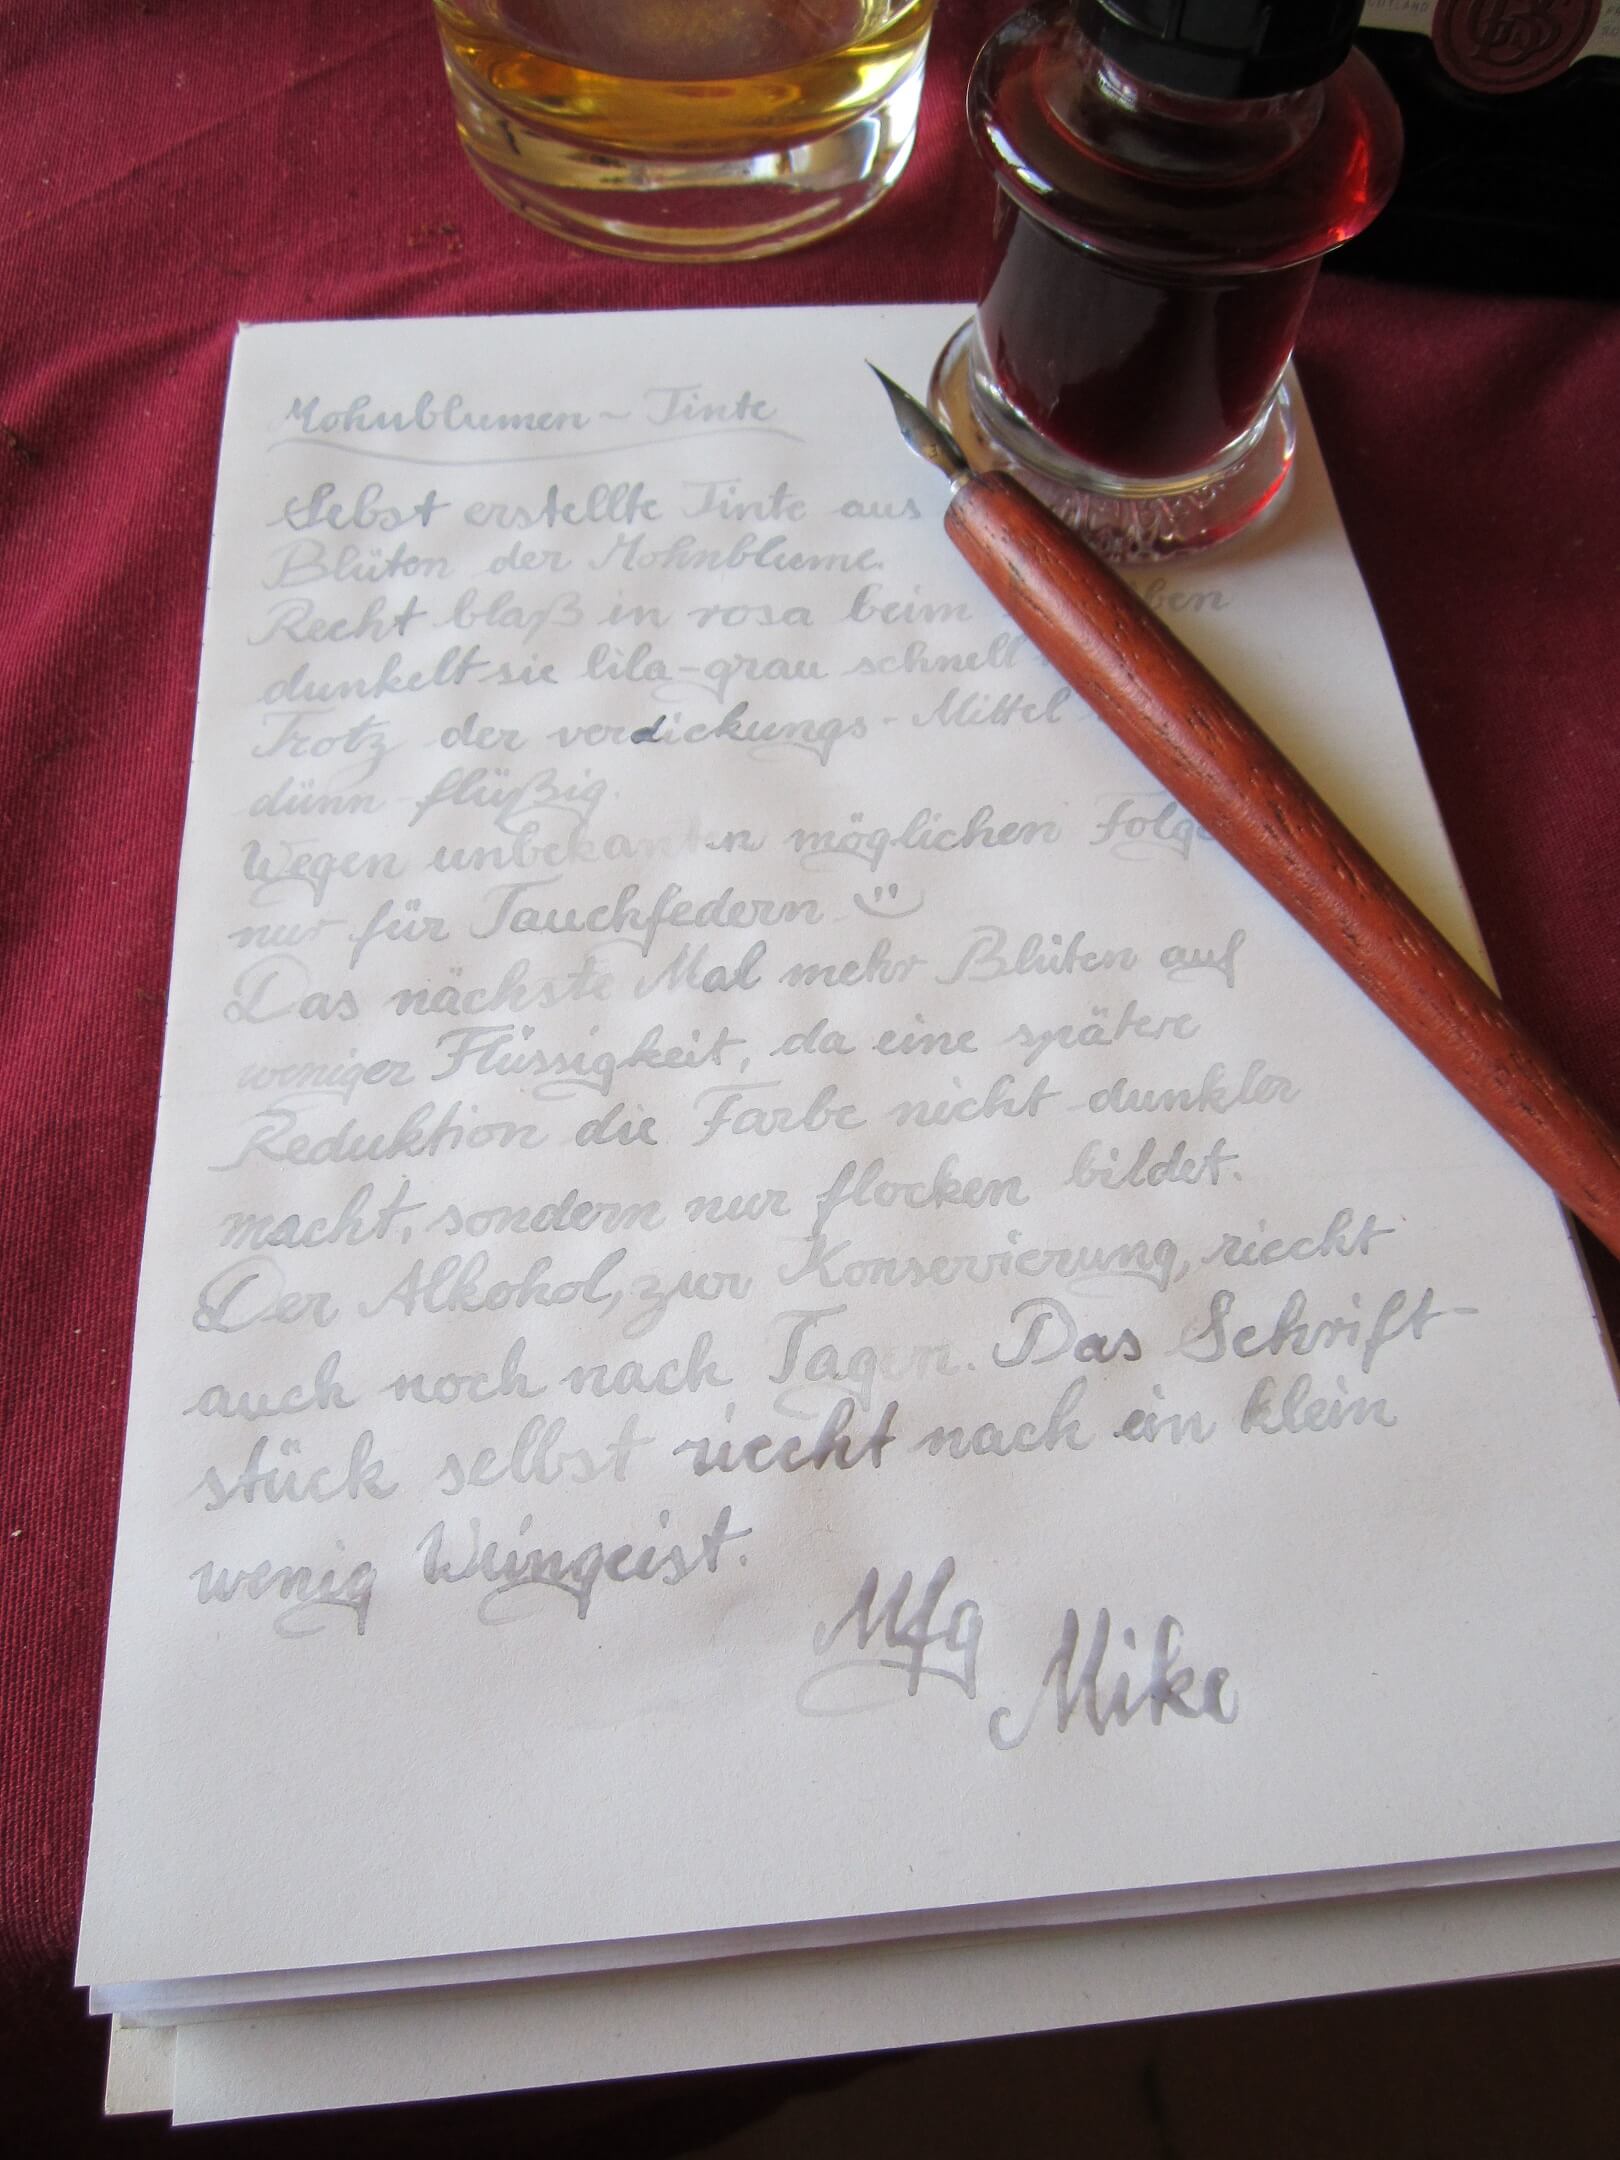 Mohnblumen - Tinte
Sebst erstellte Tinte aus
Blüten der Mohnblume.
Recht blaß in rosa beim
dunkelt sie lila-grau schnell
Trotz der verdickungs-Mittel
dünn flüßig.
Wegen unbekannten möglichen
nur für Tauchfedern
Das nächste Mal mehr Blüten auf
weniger Flüssigkeit, da eine spätere
Reduktion die Farbe nicht dunkler
macht, sondern nur flocken bildet.
Der Alkohol, zur Konservierung, riecht
auch noch nach Tagen. Das Schrift-
stück selbst riecht nach ein klein
wenig Weingeist.
Mfg
Mike